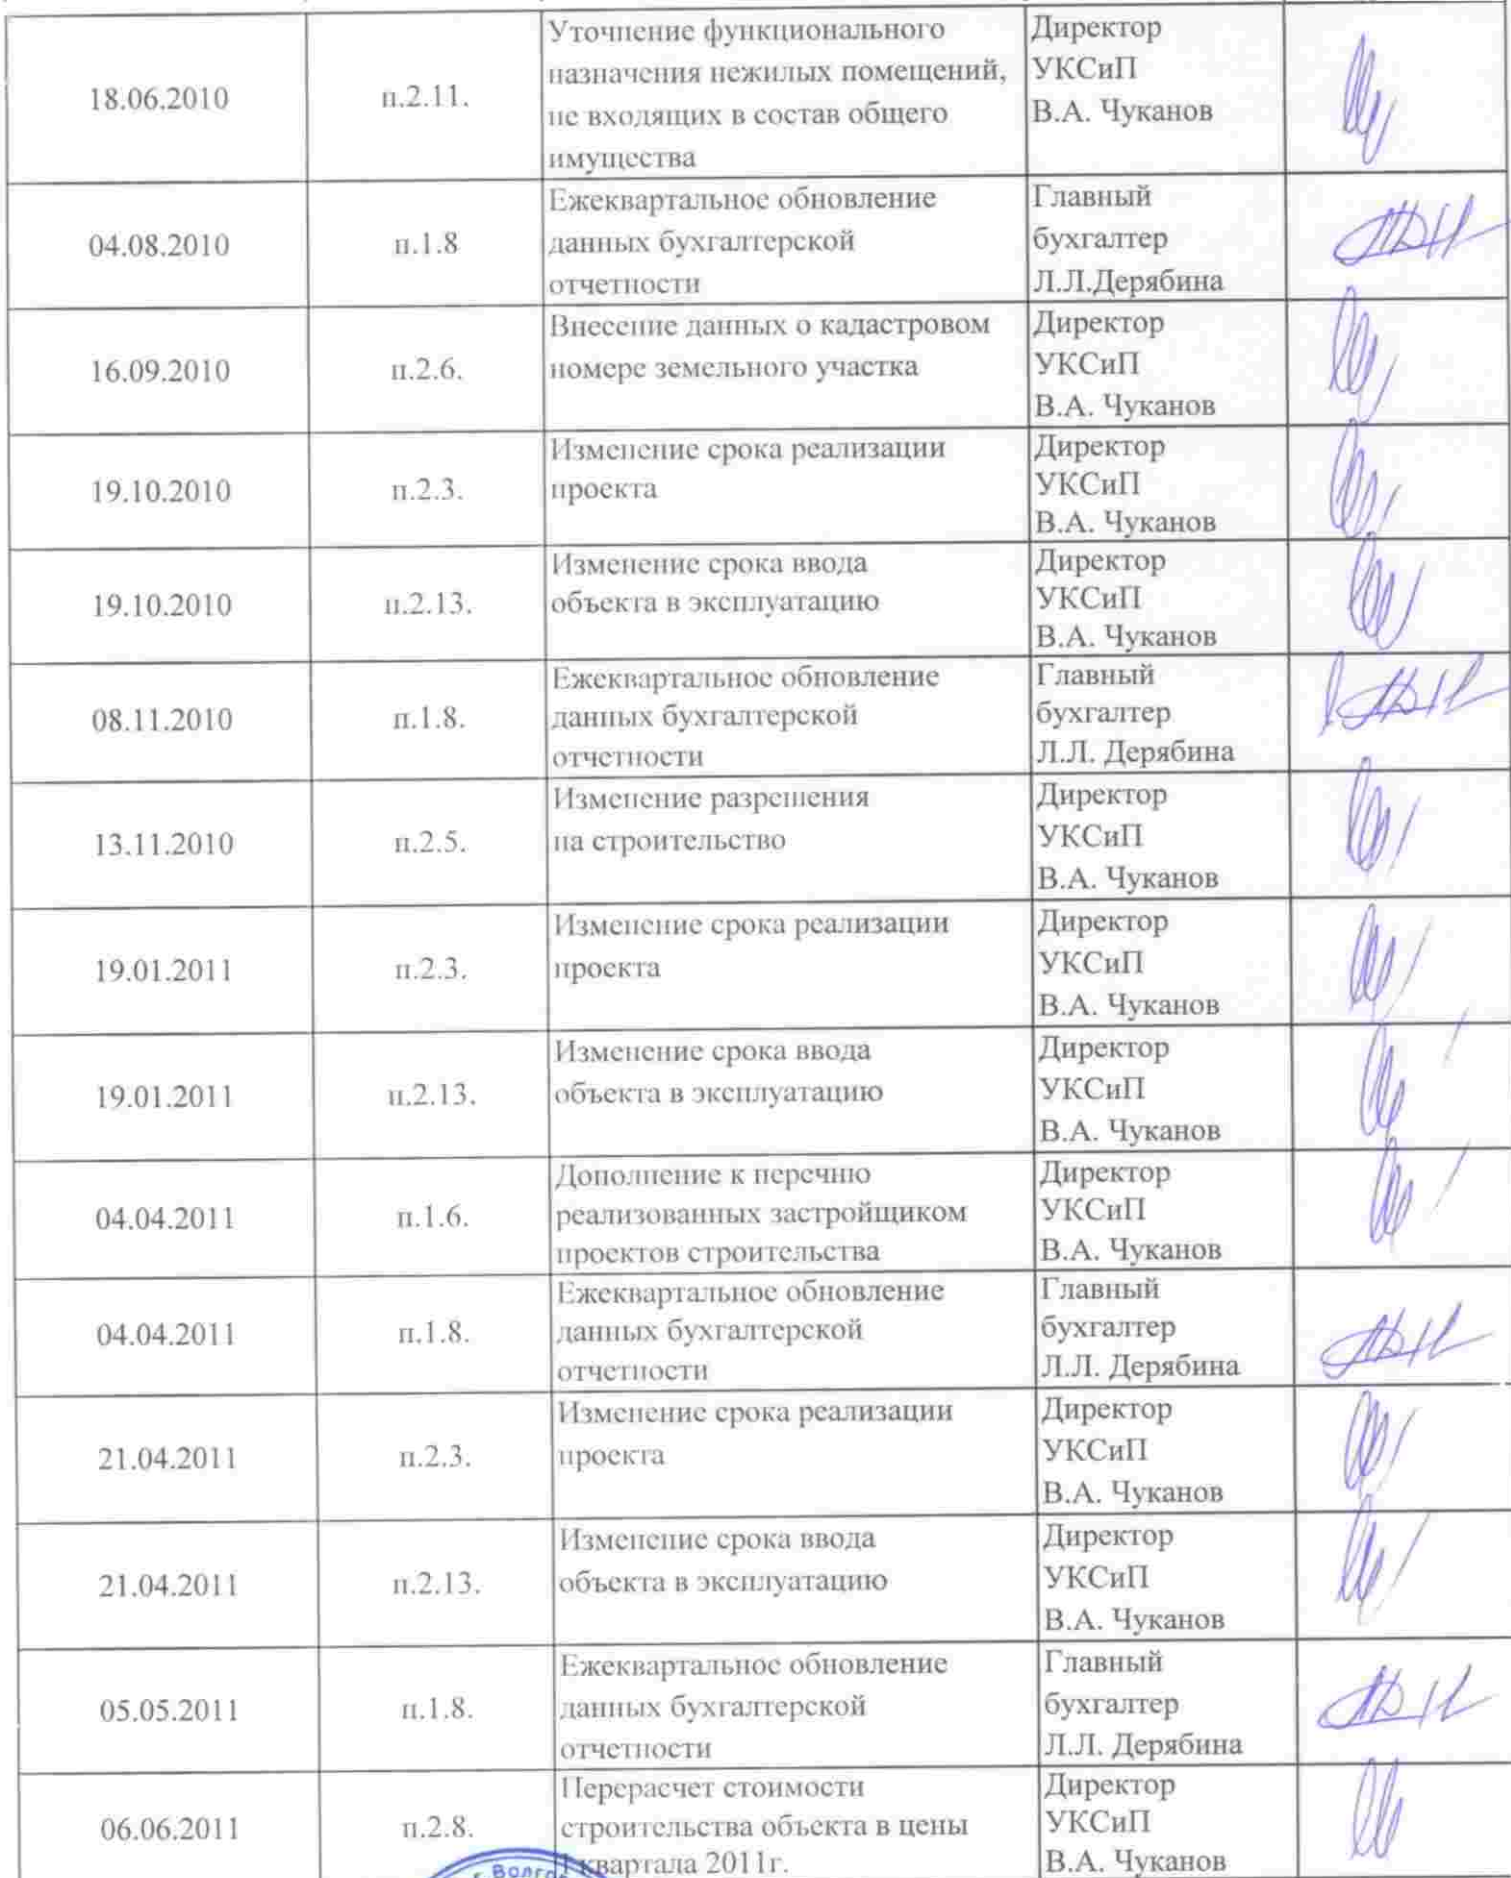 18.06.2010
п.2.11.
Уточнение функционального
назначения нежилых помещений,
не входящих в состав общего
имущества
Директор
УКСиП
В.А. Чуканов
04.08.2010
п.1.8
Ежеквартальное обновление
данных бухгалтерской
отчетности
Главный
бухгалтер
Л.Л.Дерябина
16.09.2010
п.2.6.
Внесение данных о кадастровом
номере земельного участка
Директор
УКСиП
В.А. Чуканов
19.10.2010
п.2.3.
Изменение срока реализации
проекта
Директор
УКСиП
В.А. Чуканов
19.10.2010
п.2.13.
Изменение срока ввода
объекта в эксплуатацию
Директор
УКСиП
В.А. Чуканов
08.11.2010
п.1.8.
Ежеквартальное обновление
данных бухгалтерской
отчетности
Главный
бухгалтер
Л.Л. Дерябина
13.11.2010
п.2.5.
Изменение разрешения
на строительство
Директор
УКСиП
В.А. Чуканов
19.01.2011
п.2.3.
Изменение срока реализации
проекта
Директор
УКСиП
В.А. Чуканов
19.01.2011
п.2.13.
Изменение срока ввода
объекта в эксплуатацию
Директор
УКСиП
В.А. Чуканов
04.04.2011
п.1.6.
Дополнение к перечню
реализованных застройщиком
проектов строительства
Директор
УКСиП
В.А. Чуканов
04.04.2011
п.1.8.
Ежеквартальное обновление
данных бухгалтерской
отчетности
Главный
бухгалтер
Л.Л. Дерябина
21.04.2011
п.2.3.
Изменение срока реализации
проекта
Директор
УКСиП
В.А. Чуканов
21.04.2011
п.2.13.
Изменение срока ввода
объекта в эксплуатацию
Директор
УКСиП
В.А. Чуканов
05.05.2011
п.1.8.
Ежеквартальное обновление
данных бухгалтерской
отчетности
Главный
бухгалтер
Л.Л. Дерябина
06.06.2011
п.2.8.
Перерасчет стоимости
строительства объекта в цены
I квартала 2011г.
Директор
УКСиП
В.А. Чуканов